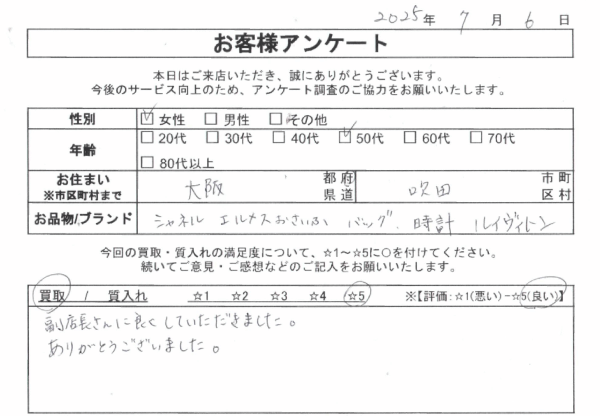 2025年 7月 6日
お客様アンケート
本日はご来店いただき、誠にありがとうございます。
今後のサービス向上のため、アンケート調査のご協力をお願いいたします。
性別 ☑女性 □男性 □その他
年齢 □20代 □30代 □40代 ☑50代 □60代 □70代
□80代以上
お住まい ※市区町村まで 大阪 都府県道 吹田 市町区村
お品物/ブランド シャネル エルメスおさいふ バッグ. 時計 ルイヴィトン
今回の買取・質入れの満足度について、☆1～☆5に○を付けてください。
続いてご意見・ご感想などのご記入をお願いいたします。
買取 / 質入れ ☆1 ☆2 ☆3 ☆4 ☆5 ※【評価:☆1(悪い)－☆5(良い)】
副店長さんに良くしていただきました。
ありがとうございました。